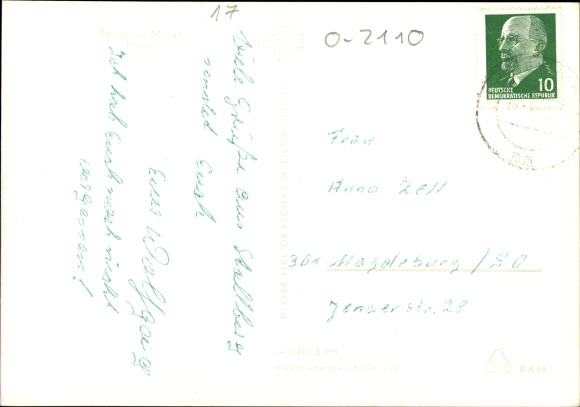 17
O-2110
Viele Grüße aus Stollberg
sendet Euch
Euer Wolfgang
Ich hab Euch noch nicht
vergessen!
DEUTSCHE
DEMOKRATISCHE REPUBLIK
10
Frau
Anna Zell
301 Magdeburg / SO
Jenaerstr. 28